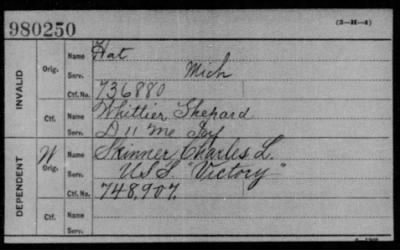 980250
(3-H-4)
INVALID
Orig.
Name Hat
Serv. Mich
Ctf. No. 736880
Ctf.
Name Whittier Shepard
Serv. D 11 Me Inf
DEPENDENT
W
Orig.
Name Skinner Charles L.
Serv. U.S.S. "Victory"
Ctf. No. 748,907.
Ctf.
Name
Serv.